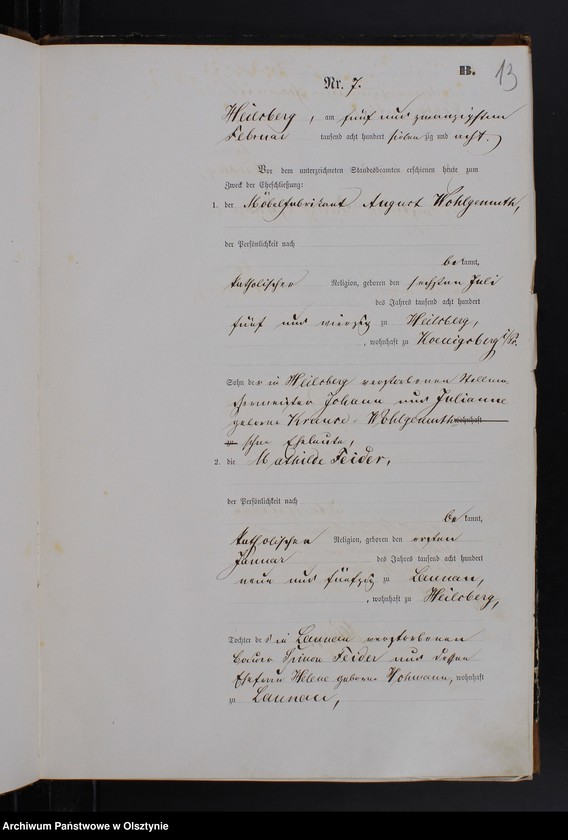 B.
13
Nr. 7.
Heilsberg, am fünf und zwanzigsten
Februar tausend acht hundert sieben zig und acht.
Vor dem unterzeichneten Standesbeamten erschienen heute zum
Zweck der Eheschließung:
1. der Möbelfabrikant August Wohlgemuth,
der Persönlichkeit nach
be kannt,
katholischer Religion, geboren den sechsten Juli
des Jahres tausend acht hundert
fünf und vierzig zu Heilsberg,
, wohnhaft zu Koenigsberg i/Pr.
Sohn der in Heilsberg verstorbenen Stellma-
chermeister Johann und Julianne
geborne Krause- Wohlgemuth wohnhaft
zu schen Eheleute,
2. die Mathilde Feider,
der Persönlichkeit nach
be kannt,
katholischen Religion, geboren den ersten
Januar des Jahres tausend acht hundert
neun und fünfzig zu Launau,
, wohnhaft zu Heilsberg,
Tochter des in Launau verstorbenen
Bauer Simon Feider und dessen
Ehefrau Helene geborne Hohmann, wohnhaft
zu Launau,
Archiwum Państwowe w Olsztynie